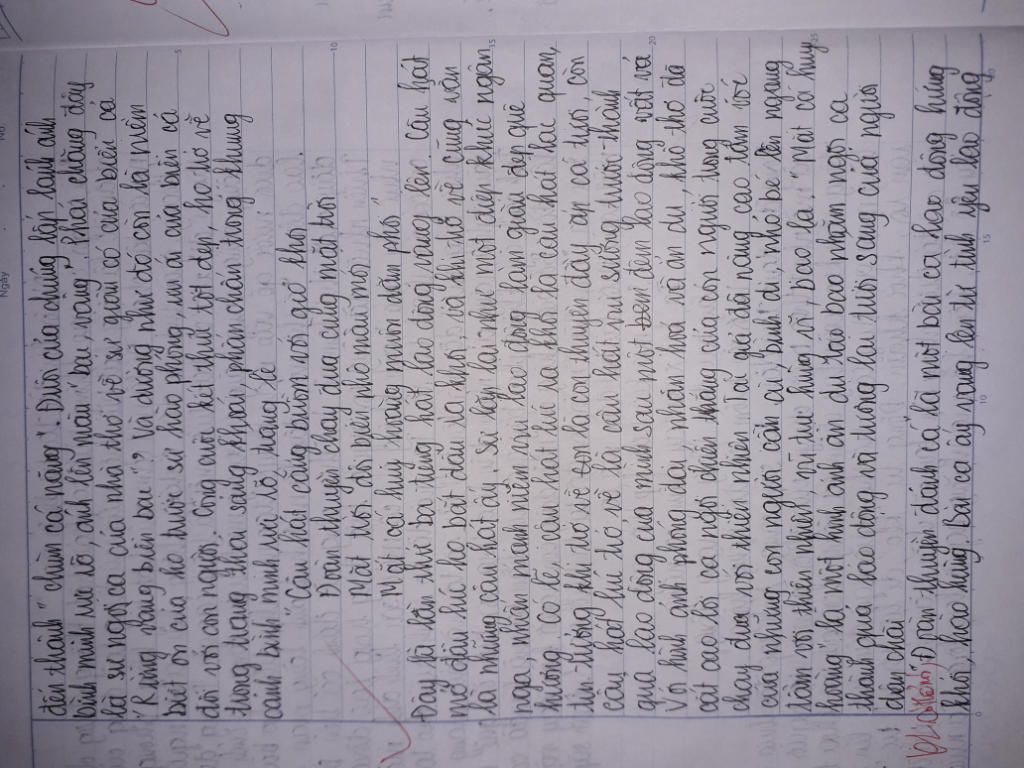 đến thành "chùm cá nặng". Đuôi của chúng lấp lánh ánh
bình minh rực rỡ ánh lên màu "bạc, vàng", phải chăng đây
là sự ngợi ca của nhà thơ về sự giàu có của biển cả
"Rừng vàng biển bạc", và dường như đó còn là niềm
biết ơn của họ trước sự hào phóng, ưu ái của biển cả
đối với con người. Công cuộc kết thúc tốt đẹp, họ trở về
trong trạng thái sảng khoái, phấn chấn trong khung
cảnh bình minh rực rỡ, tráng lệ
"Câu hát căng buồm với gió khơi
Đoàn thuyền chạy đua cùng mặt trời
Mặt trời đội biển nhô màu mới
Mắt cá huy hoàng muôn dặm phơi"
Đây là lần thứ ba tiếng hát lao động vang lên. Câu hát
mở đầu lúc họ bắt đầu ra khơi, và khi trở về cũng vẫn
là những câu hát ấy. Sự lặp lại như một điệp khúc ngân
nga, nhấn mạnh niềm vui lao động làm giàu đẹp quê
hương, có lẽ, câu hát lúc ra khơi là câu hát lạc quan,
tin tưởng khi trở về con thuyền đầy ắp cá tươi, còn
câu hát lúc trở về là câu hát vui sướng trước thành
quả lao động của mình sau một đêm lao động vất vả
Với hình ảnh phóng đại, nhân hoá và ẩn dụ, nhà thơ đã
cất cao lời ca ngợi chiến thắng của con người trong cuộc
chạy đua với thiên nhiên. Tác giả đã nâng cao tầm vóc
của những con người cần cù, bình dị, nhỏ bé lên ngang
tầm với thiên nhiên, vũ trụ hùng vĩ, bao la. "Mắt cá huy
hoàng" là một hình ảnh ẩn dụ táo bạo nhằm ngợi ca
thành quả lao động và tương lai tươi sáng của người
dân chài
Đoàn thuyền đánh cá là một bài ca lao động hứng
khởi, hào hùng. Bài ca ấy vang lên từ tình yêu lao động